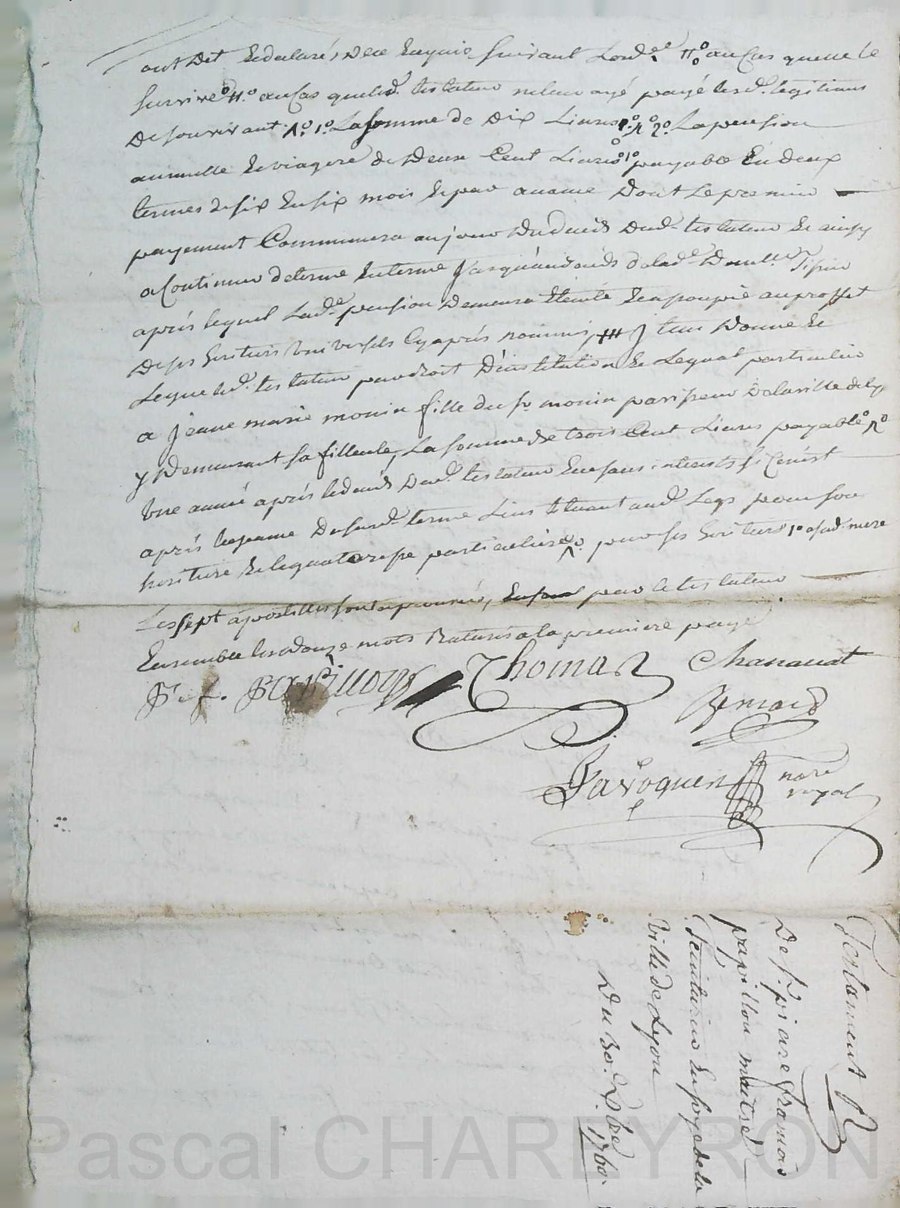 ont dit et declaré de ce enquis suivant l'ord.ce n.o au cas quelle le
survive n.o au cas que led. testateur ne leur aye payé lesd. legitimes
de son vivant n.o 1.o La somme de Dix Livres n.o 2.o La pension
annuelle et viagere de Deux Cent Livres 1.o payable En deux
termes de six En six mois et par avance Dont Le premier
payement Commencera au jour du deced dud. testateur et ainsy
a Continuer de terme En terme jusqu'au deced de lad.e Dem.lle
après lequel Lad.e pension Demeurera Eteinte et au proffit
De ses heritiers universels Cy après nommés Item Donne et
Legue led. testateur par droit D'institution et Legat particulier
a jeanne marie monin fille du s.r monin De la ville de
y Demeurant sa filleule, La somme de trois Cent Livres payable n.o
Une année après le deced Dud. testateur Et sans interets si Ce n'est
après Dud. terme L'instituant aud. Legs pour son
heritiere et particuliere pour ses heritiers 1.o a sad. mere
Les sept apostilles sont aprouvées, par le testateur
Ensemble les onze mots Raturés a la premiere page
P.re f. papillon Thomas Chanavat
Bernard
Gavoquen no.re
royal
Testament
De S. pierre François
papillon maitre
Teinturier En soye de la
Ville de Lyon
Du 30. Xbre
1760.
Pascal CHARLYRON